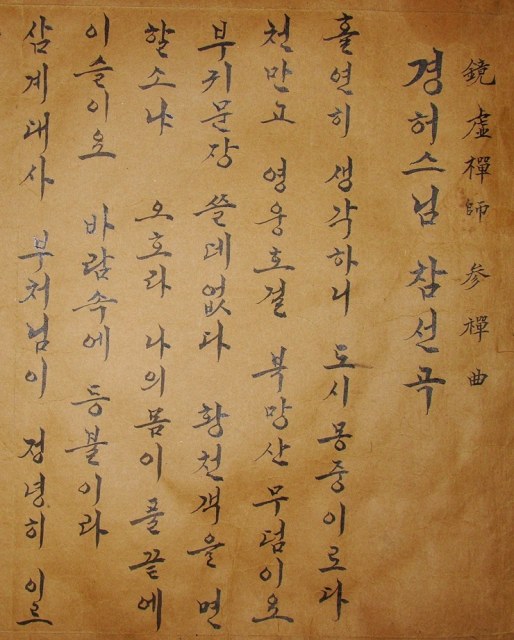 鏡虛禪師 参禪曲
경허스님 참선곡
홀연히 생각하니 도시몽중이로다
천만고 영웅호걸 북망산 무덤이요
부귀문장 쓸데없다 황천객을 면
할소냐 오호라 나의몸이 풀끝에
이슬이요 바람속에 등불이라
삼계대사 부처님이 정녕히 이르